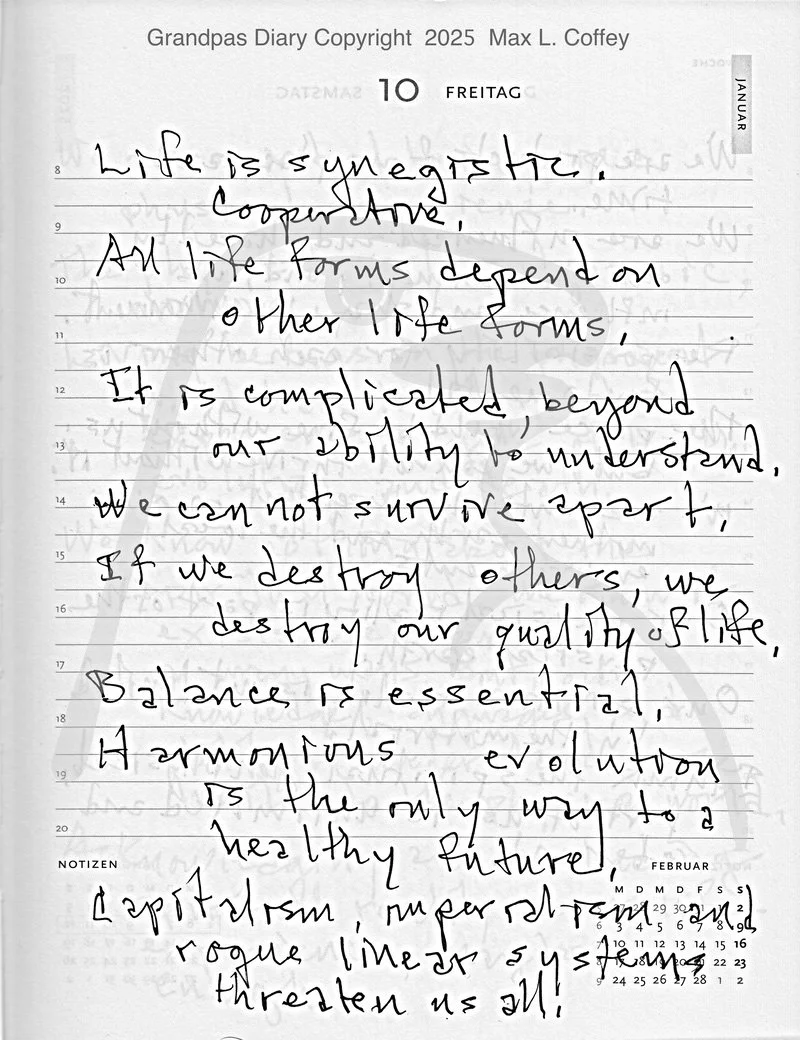 Grandpas Diary Copyright 2025 Max L. Coffey
10 FREITAG
JANUAR
8 Life is synegistic.
Cooperative.
9
All life forms depend on
10
other life forms.
11
12 It is complicated, beyond
13 our ability to understand.
14 We can not survive apart.
15 If we destroy others, we
16 destroy our quality of life.
17
Balance is essential.
18
Harmonious evolution
19 is the only way to a
20 healthy future!
NOTIZEN
FEBRUAR
M D M D F S S
Capitalism, imperialism and
29 30 1 2
6 3 4 5 6 7 8 9
rogue linear systems
10 11 12 13 14 15 16
22 23
threaten us all!
9 24 25 26 27 28 1 2